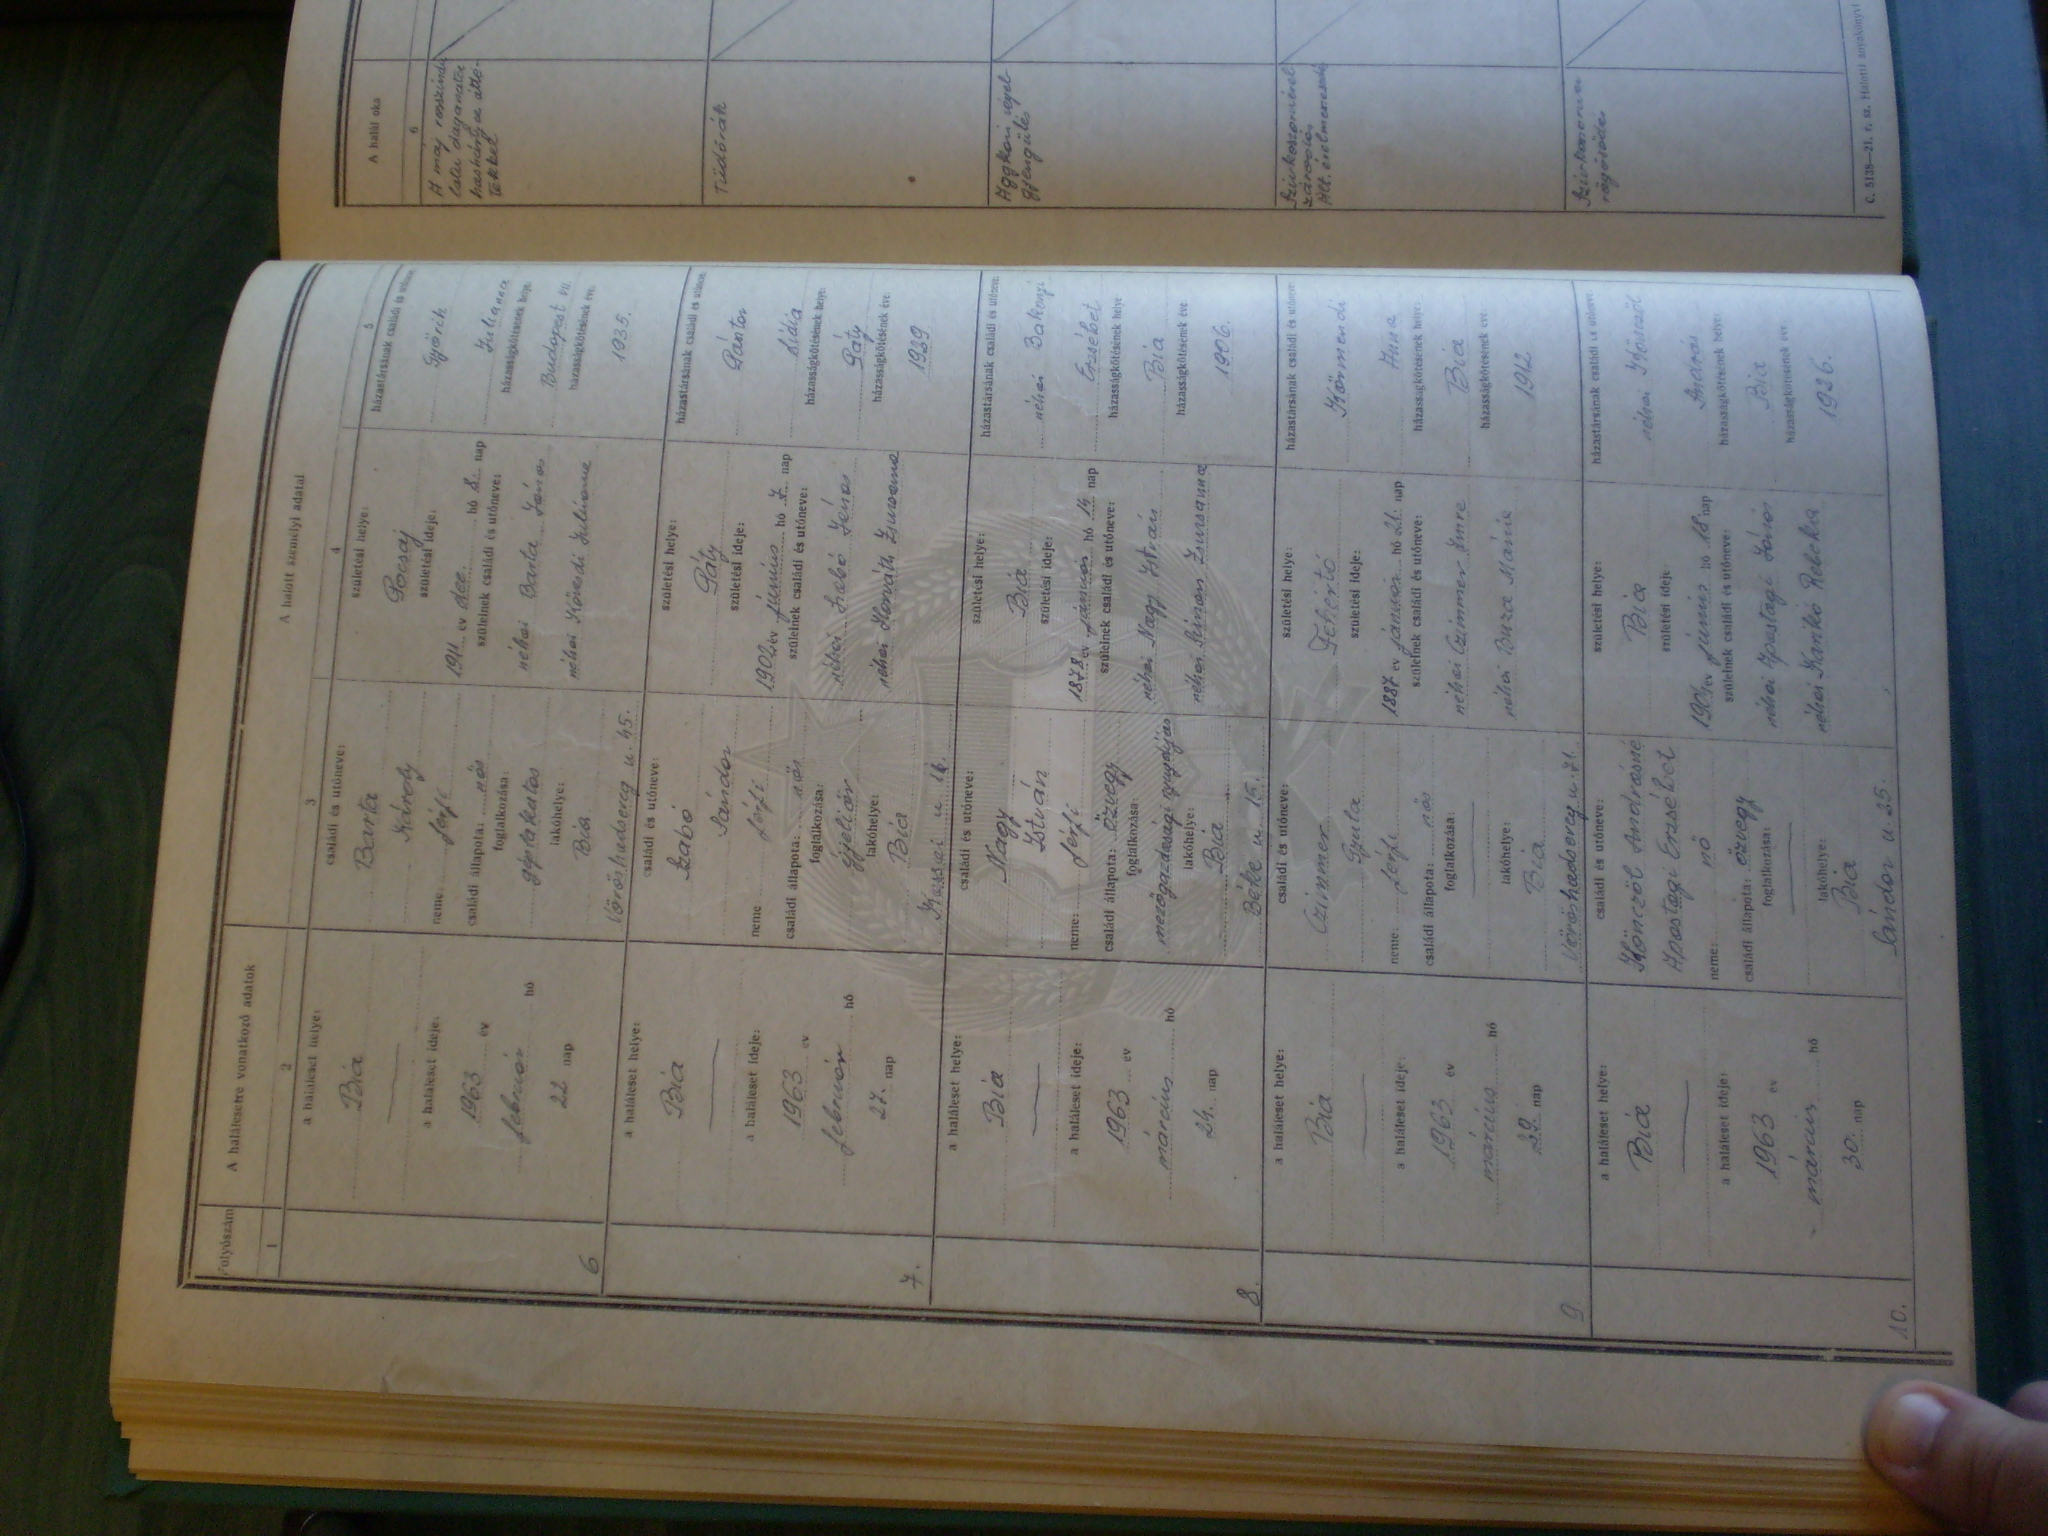 Folyószám
A halálesetre vonatkozó adatok
A halott személyi adatai
1
2
3
4
5
a haláleset helye:
Bia
a haláleset ideje:
1963 év
február hó
22 nap
6
családi és utóneve:
Barta
Károly
neme: férfi
családi állapota: nős
foglalkozása:
géplakatos
lakóhelye:
Bia
Vöröshadsereg u. 45.
születési helye:
Pocsaj
születési ideje:
1911 év dec. hó 8. nap
szüleinek családi és utóneve:
néhai Barta János
néhai Kövesdi Juliánna
házastársának családi és utóneve:
Györik
Julianna
házasságkötésének helye:
Budapest VII.
házasságkötésének éve:
1935.
a haláleset helye:
Bia
a haláleset ideje:
1963 év
február hó
27. nap
7.
családi és utóneve:
Szabó
Sándor
neme férfi
családi állapota: nős
foglalkozása:
éjjeliőr
lakóhelye:
Bia
u. 16.
születési helye:
Páty
születési ideje:
1902 év június hó 7. nap
szüleinek családi és utóneve:
néhai Szabó János
néhai Horváth Zsuzsanna
házastársának családi és utóneve:
Pántor
Lídia
házasságkötésének helye:
Páty
házasságkötésének éve:
1929
a haláleset helye:
Bia
a haláleset ideje:
1963 év
március hó
24. nap
8.
családi és utóneve:
Nagy
István
neme: férfi
családi állapota: özvegy
foglalkozása:
mezőgazdasági nyugdíjas
lakóhelye:
Bia
Béke u. 15.
születési helye:
Bia
születési ideje:
1878 év január hó 14 nap
szüleinek családi és utóneve:
néhai Nagy István
néhai Simon Zsuzsanna
házastársának családi és utóneve:
néhai Bakonyi
Erzsébet
házasságkötésének helye
Bia
házasságkötésének éve
1906.
a haláleset helye:
Bia
a haláleset ideje:
1963 év
március hó
29. nap
9
családi és utóneve:
Czimmer
Gyula
neme: férfi
családi állapota: nős
foglalkozása:
lakóhelye:
Bia
Vöröshadsereg u. 71.
születési helye:
Fehértó
születési ideje:
1887 év január hó 21. nap
szüleinek családi és utóneve:
néhai Czimmer Imre
néhai Buza Mária
házastársának családi és utóneve:
Körmendi
Anna
házasságkötésének helye:
Bia
házasságkötésének éve:
1912
a haláleset helye:
Bia
a haláleset ideje:
1963 év
március hó
30. nap
10.
családi és utóneve:
Könczöl Andrásné
Apostagi Erzsébet
neme: nő
családi állapota: özvegy
foglalkozása:
lakóhelye:
Bia
Sándor u. 25.
születési helye:
Bia
születési ideje
év június hó 18 nap
szüleinek családi és utóneve:
néhai Apostagi János
néhai Kankó Rebeka
házastársának családi és utóneve:
néhai Könczöl
András
házasságkötésének helye:
Bia
házasságkötésének éve:
1926.
A halál oka
6
A máj rosszindu
latu daganata
hashártya átté-
tekkel
Tüdőrák
Aggkori végel-
gyengülés
Szívkoszorúér
elzáródás
Ált. érelmeszesedés
C. 5138—21. r. sz. Halotti anyakönyv